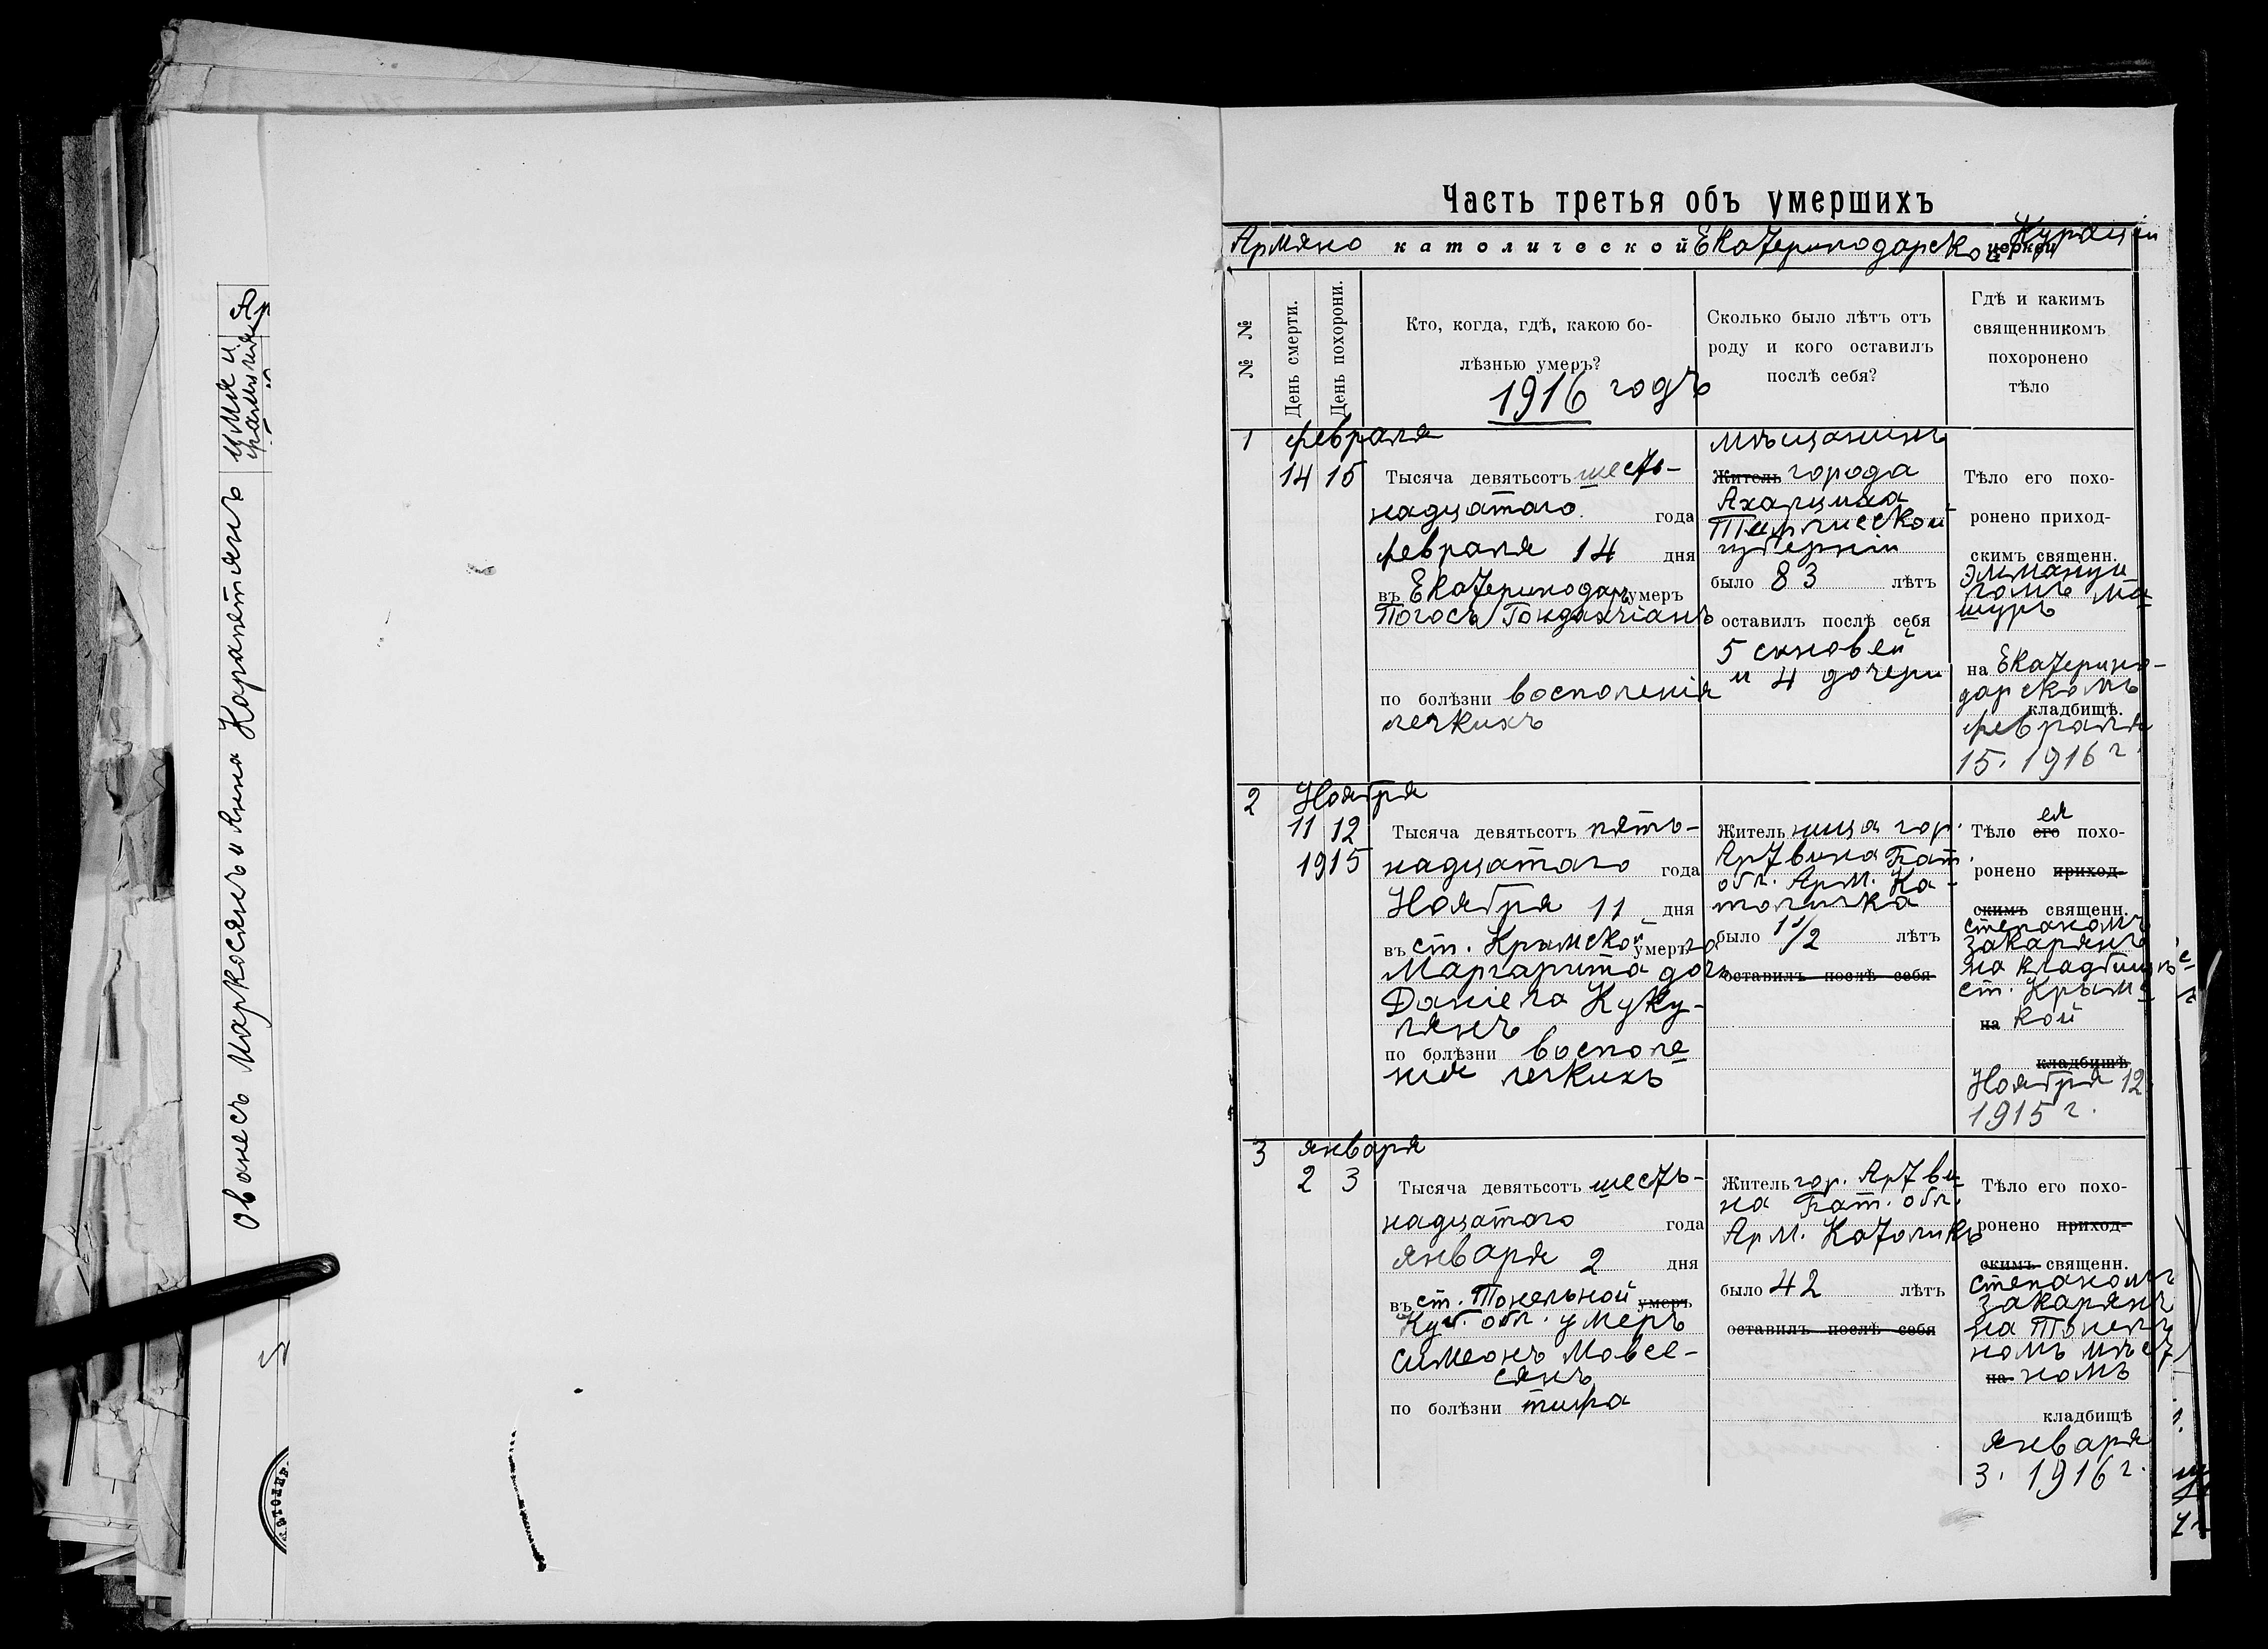 имя и
фамилія
Ованесъ Маркосянъ и Анна Карапетянъ
Часть третья объ умершихъ
Армяно католической Екатеринодарской церкви Курации
№ №
День смерти.
День похорони.
Кто, когда, гдѣ, какою бо-
лѣзнью умеръ?
1916 годъ
Сколько было лѣтъ отъ
роду и кого оставилъ
послѣ себя?
Гдѣ и какимъ
священникомъ
похоронено
тѣло
1
февраля
14 15
Тысяча девятьсотъ шесть-
надцатаго года
февраля 14 дня
въ Екатеринодарѣ умеръ
Погосъ Гондахчіанъ
по болѣзни восполенія
легкихъ
мѣщанинъ
Житель города
Ахалциха
Тифлисской
губерніи
было 83 лѣтъ
оставилъ послѣ себя
5 сыновей
и 4 дочери
Тѣло его похо-
ронено приход-
скимъ священн.
Эммануи
ломъ Ма-
шуръ
на Екатерино-
дарскомъ
кладбищѣ.
февраля
15. 1916 г.
2
Ноября
11 12
1915
Тысяча девятьсотъ пять-
надцатаго года
Ноября 11 дня
въ ст. Крымской умерла
Маргарита дочь
Даніела Куку-
лянъ
по болѣзни восполе
нія легкихъ
Жительница гор.
Артвина Бат.
обл. Арм. Ка-
толичка
было 1 1/2 лѣтъ
оставилъ послѣ себя
Тѣло его ея похо-
ронено приход-
скимъ священн.
Степаномъ
Закарянъ
на кладбищѣ
ст. Крымс
на кой
кладбищѣ
Ноября 12
1915 г.
3
января
2 3
Тысяча девятьсотъ шесть-
надцатаго года
января 2 дня
въ ст. Тонельной умеръ
Куб. обл. умеръ
Симеонъ Мовсе-
сянъ
по болѣзни тифа
Житель гор. Артви-
на Бат. обл.
Арм. Католикъ
было 42 лѣтъ
оставилъ послѣ себя
Тѣло его похо-
ронено приход-
скимъ священн.
Степаномъ
Закарянъ
на Тонель
номъ мѣст
на номъ
кладбищѣ
января
3. 1916 г.